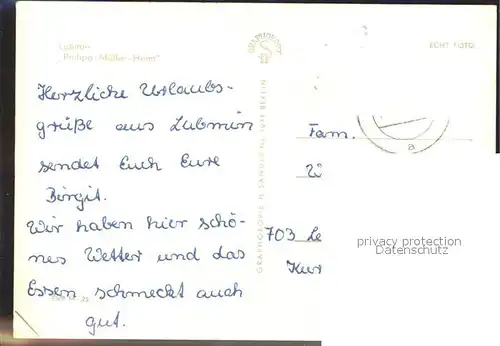 Lubmin
„Philipp-Müller-Heim"
GRAPHOKOPIE
ECHT FOTO
Herzliche Urlaubs-
grüße aus Lubmin
sendet Euch Eure
Birgit.
Wir haben hier schö-
nes Wetter und das
Essen schmeckt auch
gut.
GRAPHOKOPIE H. SANDER KG, BERLIN
Fam.
W
703 Le
Kur
a
privacy protection
Datenschutz